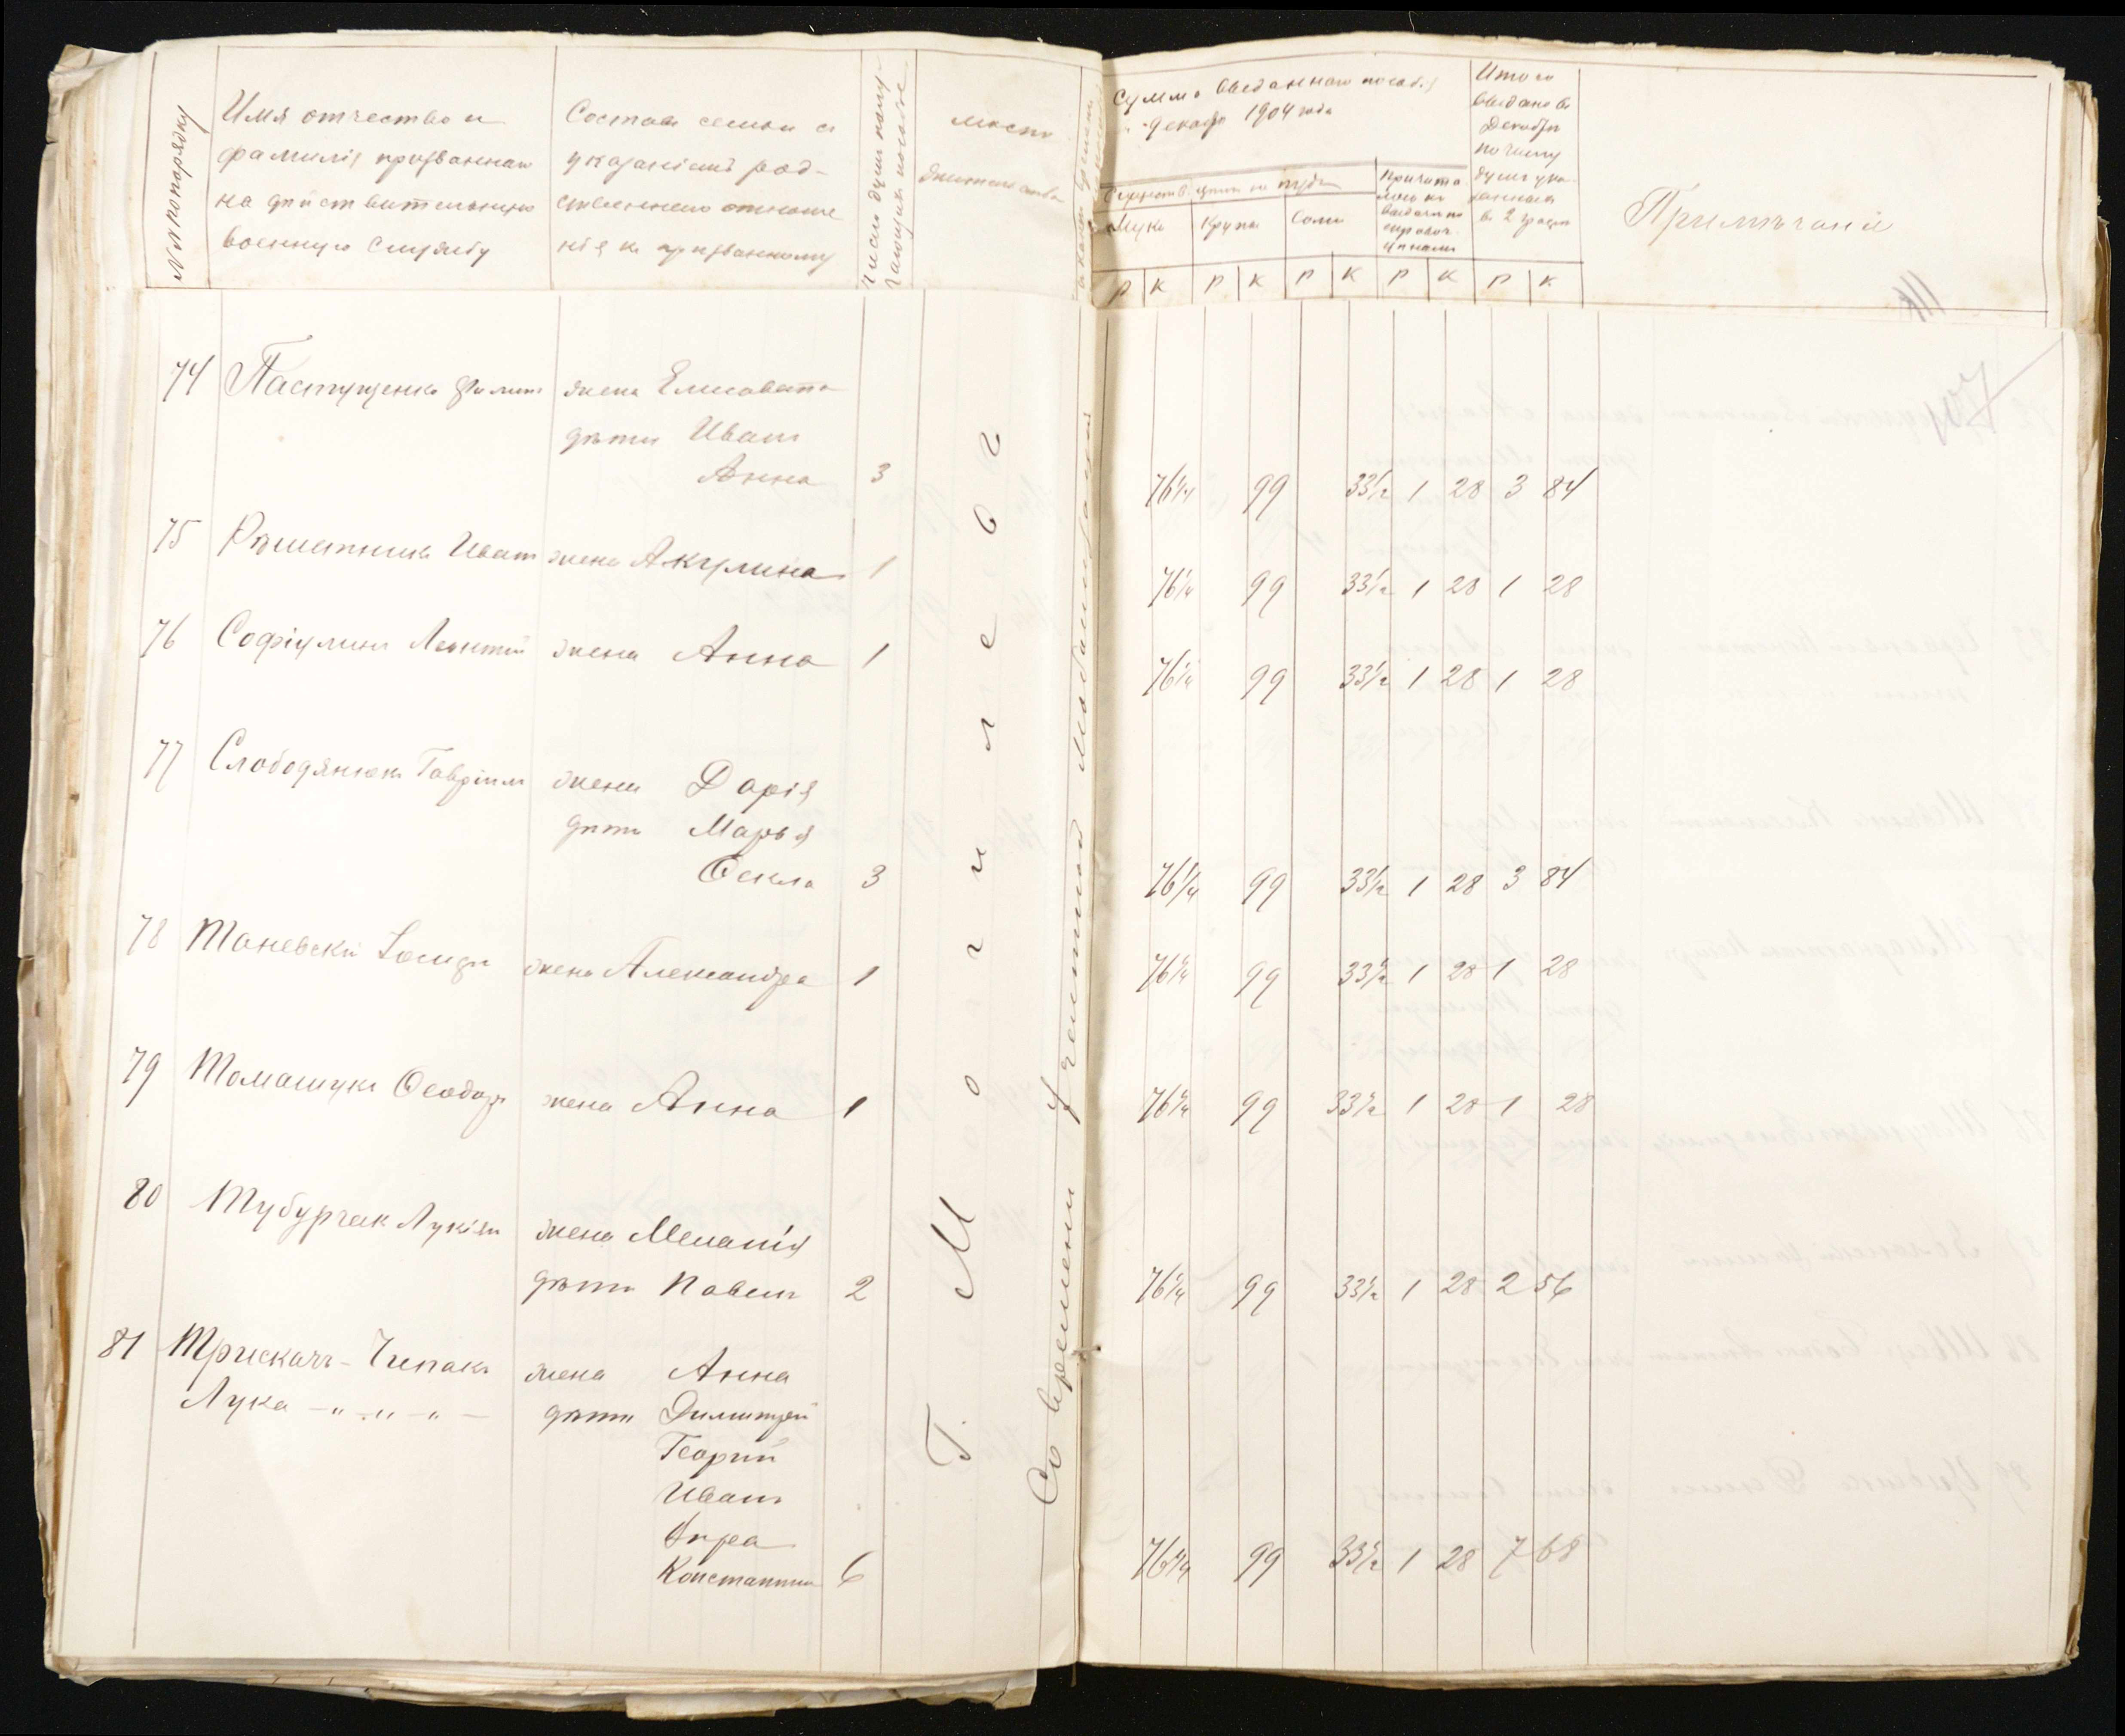 №№ по порядку
Имя отчество и
фамилія призваннаго
на дѣйствительную
военную службу
Составъ семьи съ
указаніемъ род-
ственнаго отноше
нія къ призванному
Число душъ полу-
чающихъ пособіе
мѣсто
жительства
Сумма выданнаго пособія
декабр 1904 года
цѣны на пуды
Мука
Крупы
Соли
Причита
лось къ
выдачѣ по
справоч.
цѣнамъ
Итого
выдано въ
Декабрѣ
по числу
душъ ука
занныхъ
въ 2 графѣ
Примѣчаніе
Р К Р К Р К Р К Р К
74 Пастущенко Филипъ жена Елисавета
дѣти Иванъ
Анна 3 76¼ 99 33½ 1 28 3 84
75 Рѣшетникъ Иванъ жена Акулина 1 76¼ 99 33½ 1 28 1 28
76 Софіулинъ Леонтій жена Анна 1 76¼ 99 33½ 1 28 1 28
77 Слободянюкъ Гавріилъ жена Дарія
дѣти Марья
Ѳекла 3 76¼ 99 33½ 1 28 3 84
78 Маневскій Іосифъ жена Александра 1 76¼ 99 33½ 1 28 1 28
79 Томашукъ Ѳеодоръ жена Анна 1 76¼ 99 33½ 1 28 1 28
80 Тубурчак Лукіян жена Меланія
дѣти Павелъ 2 76¼ 99 33½ 1 28 2 56
81 Трискачъ-Чипакъ жена Анна
Лука – " – " – " – дѣти Димитрій
Георгій
Иванъ
Вѣра
Константинъ 6 76¼ 99 33½ 1 28 7 68
Г. Могилевъ
Со времени учатной мобилизаціи